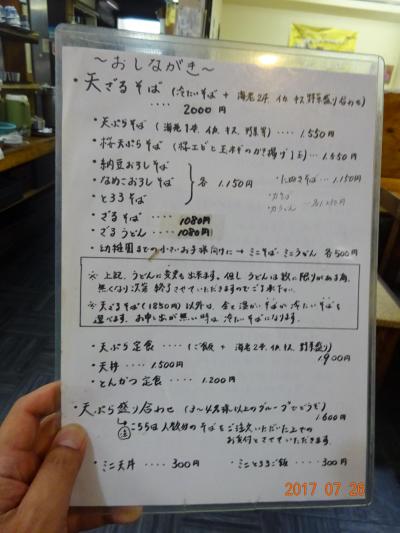 〜おしながき〜
・天ざるそば (冷たいそば + 海老2本 イカ キス 野菜盛り合わせ)
‥‥ 2000円
・天ぷらそば (海老1本、イカ、キス、野菜等) ‥‥ 1.550円
・桜天ぷらそば (桜エビと玉ネギのかき揚げ1玉)‥‥ 1.550円
・納豆おろしそば
・なめこおろしそば 各 1.150円
・とろろそば
・たぬきそば‥‥1.150円
・ざるそば ‥‥ 1080円
・ざるうどん ‥‥ 1080円
・幼稚園までの小さいお子様向けに → ミニそば ミニうどん 各500円
※ 上記、うどんに変更も出来ます。但し うどんは数に限りがある為、
無くなり次第 終了させていただきますのでご了承下さい。
※天ざるそば(1850円)以外は、全て温かいそばか冷たいそばを
選べます。お申し出が無い時は 冷たいそばになります。
・天ぷら定食 ‥‥ (ご飯 + 海老2本、イカ、キス、野菜盛り)
1900円
・天丼 ‥‥ 1.500円
・とんかつ定食 ‥‥ 1.200円
・天ぷら盛り合わせ (3〜4名様以上のグループでどうぞ)
1.600円
注 こちらは人数分のそばをご注文いただいた上での
お受付とさせていただきます。
・ミニ天丼 ‥‥ 300円
・ミニとろろご飯 ‥‥ 300円
2017 07 26